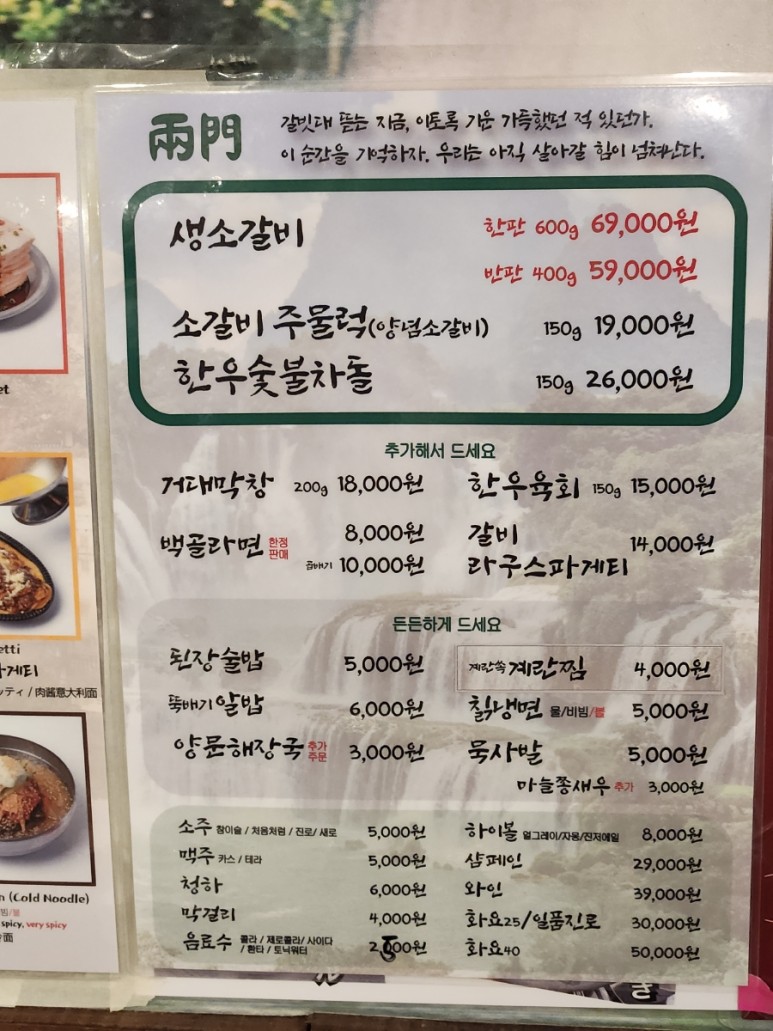 兩門
갈빗대 뜯는 지금, 이토록 기운 가득했던 적 있던가.
이 순간을 기억하자. 우리는 아직 살아갈 힘이 넘쳐난다.
생소갈비 한판 600g 69,000원
반판 400g 59,000원
소갈비 주물럭(양념소갈비) 150g 19,000원
한우숯불차돌 150g 26,000원
추가해서 드세요
거대막창 200g 18,000원
한우육회 150g 15,000원
백골라면 한정판매 8,000원
곱빼기 10,000원
갈비
라구스파게티 14,000원
든든하게 드세요
된장술밥 5,000원
계란쏙 계란찜 4,000원
뚝배기알밥 6,000원
칡냉면 물/비빔/불 5,000원
양문해장국 추가주문 3,000원
묵사발 5,000원
마늘쫑새우 추가 3,000원
소주 참이슬 / 처음처럼 / 진로 / 새로 5,000원
하이볼 얼그레이/자몽/진저에일 8,000원
맥주 카스 / 테라 5,000원
샴페인 29,000원
청하 6,000원
와인 39,000원
막걸리 4,000원
화요25/일품진로 30,000원
음료수 콜라 / 제로콜라 / 사이다
/ 환타 / 토닉워터 2,500원
화요40 50,000원
et
etti
게티
ッティ / 肉醬意大利面
n (Cold Noodle)
빔/불
spicy, very spicy
面